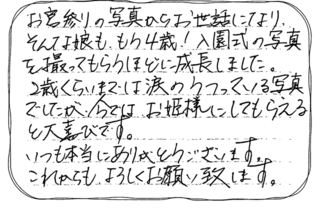 お宮参りの写真からお世話になり、
そんな娘も、もう4歳！入園式の写真
を撮ってもらうほどに成長しました。
2歳くらいまでは涙のうつっている写真
でしたが、今ではお姫様にしてもらえる
と大喜びです。
いつも本当にありがとうございます。
これからもよろしくお願い致します。